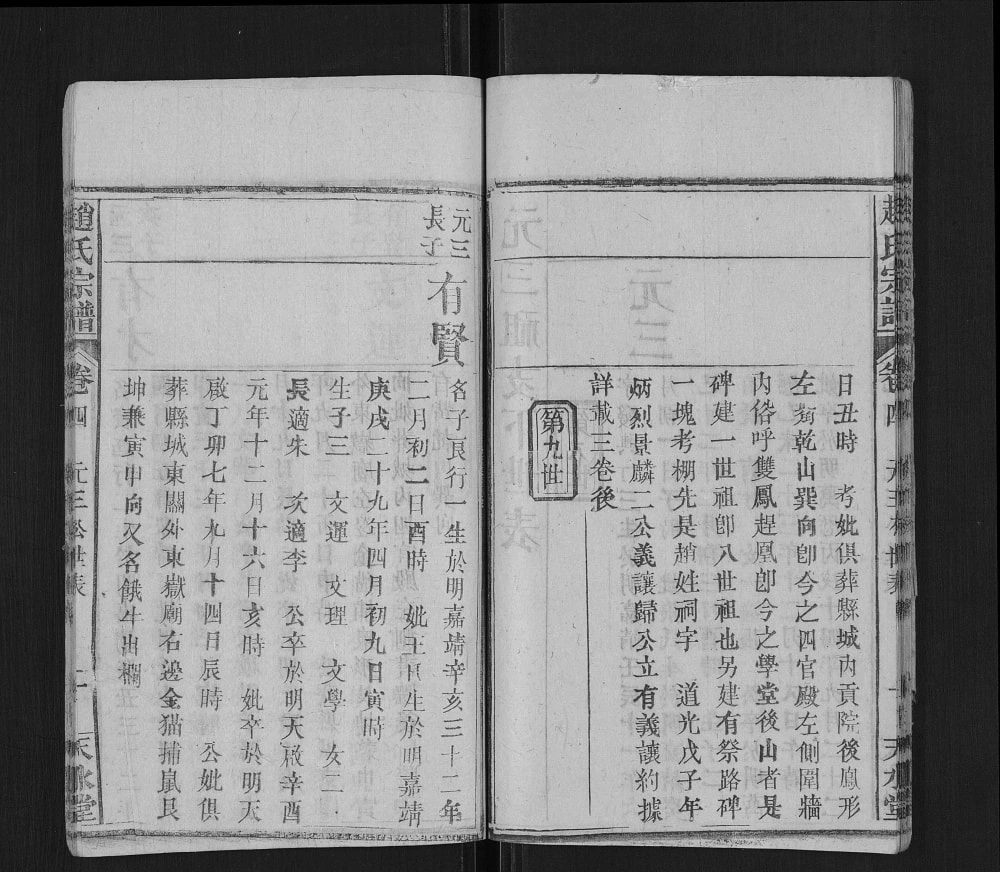 趙氏宗譜 卷四 元三公世表 天水堂
日丑時 考妣俱葬縣城內貢院後鳳形
左𦚾乾山巽向卽今之四官殿左側圍牆
內俗呼雙鳳趕凰卽今之學堂後山者是
碑建一世祖卽八世祖也另建有祭路碑
一塊考棚先是趙姓祠宇 道光戊子年
炳烈景麟二公義讓歸公立有義讓約據
詳載三卷後
第九世
元三
長子
有賢
名子良行一生於明嘉靖辛亥三十二年
二月初二日酉時 妣王氏生於明嘉靖
庚戌二十九年四月初九日寅時
生子三 文運 文理 文學 女二
長適朱 次適李 公卒於明天啟辛酉
元年十二月十六日亥時 妣卒於明天
啟丁卯七年九月十四日辰時 公妣俱
葬縣城東關外東嶽廟右邊金猫捕鼠艮
坤兼寅申向又名餓牛出欄
趙氏宗譜 卷四 元三公世表 天水堂